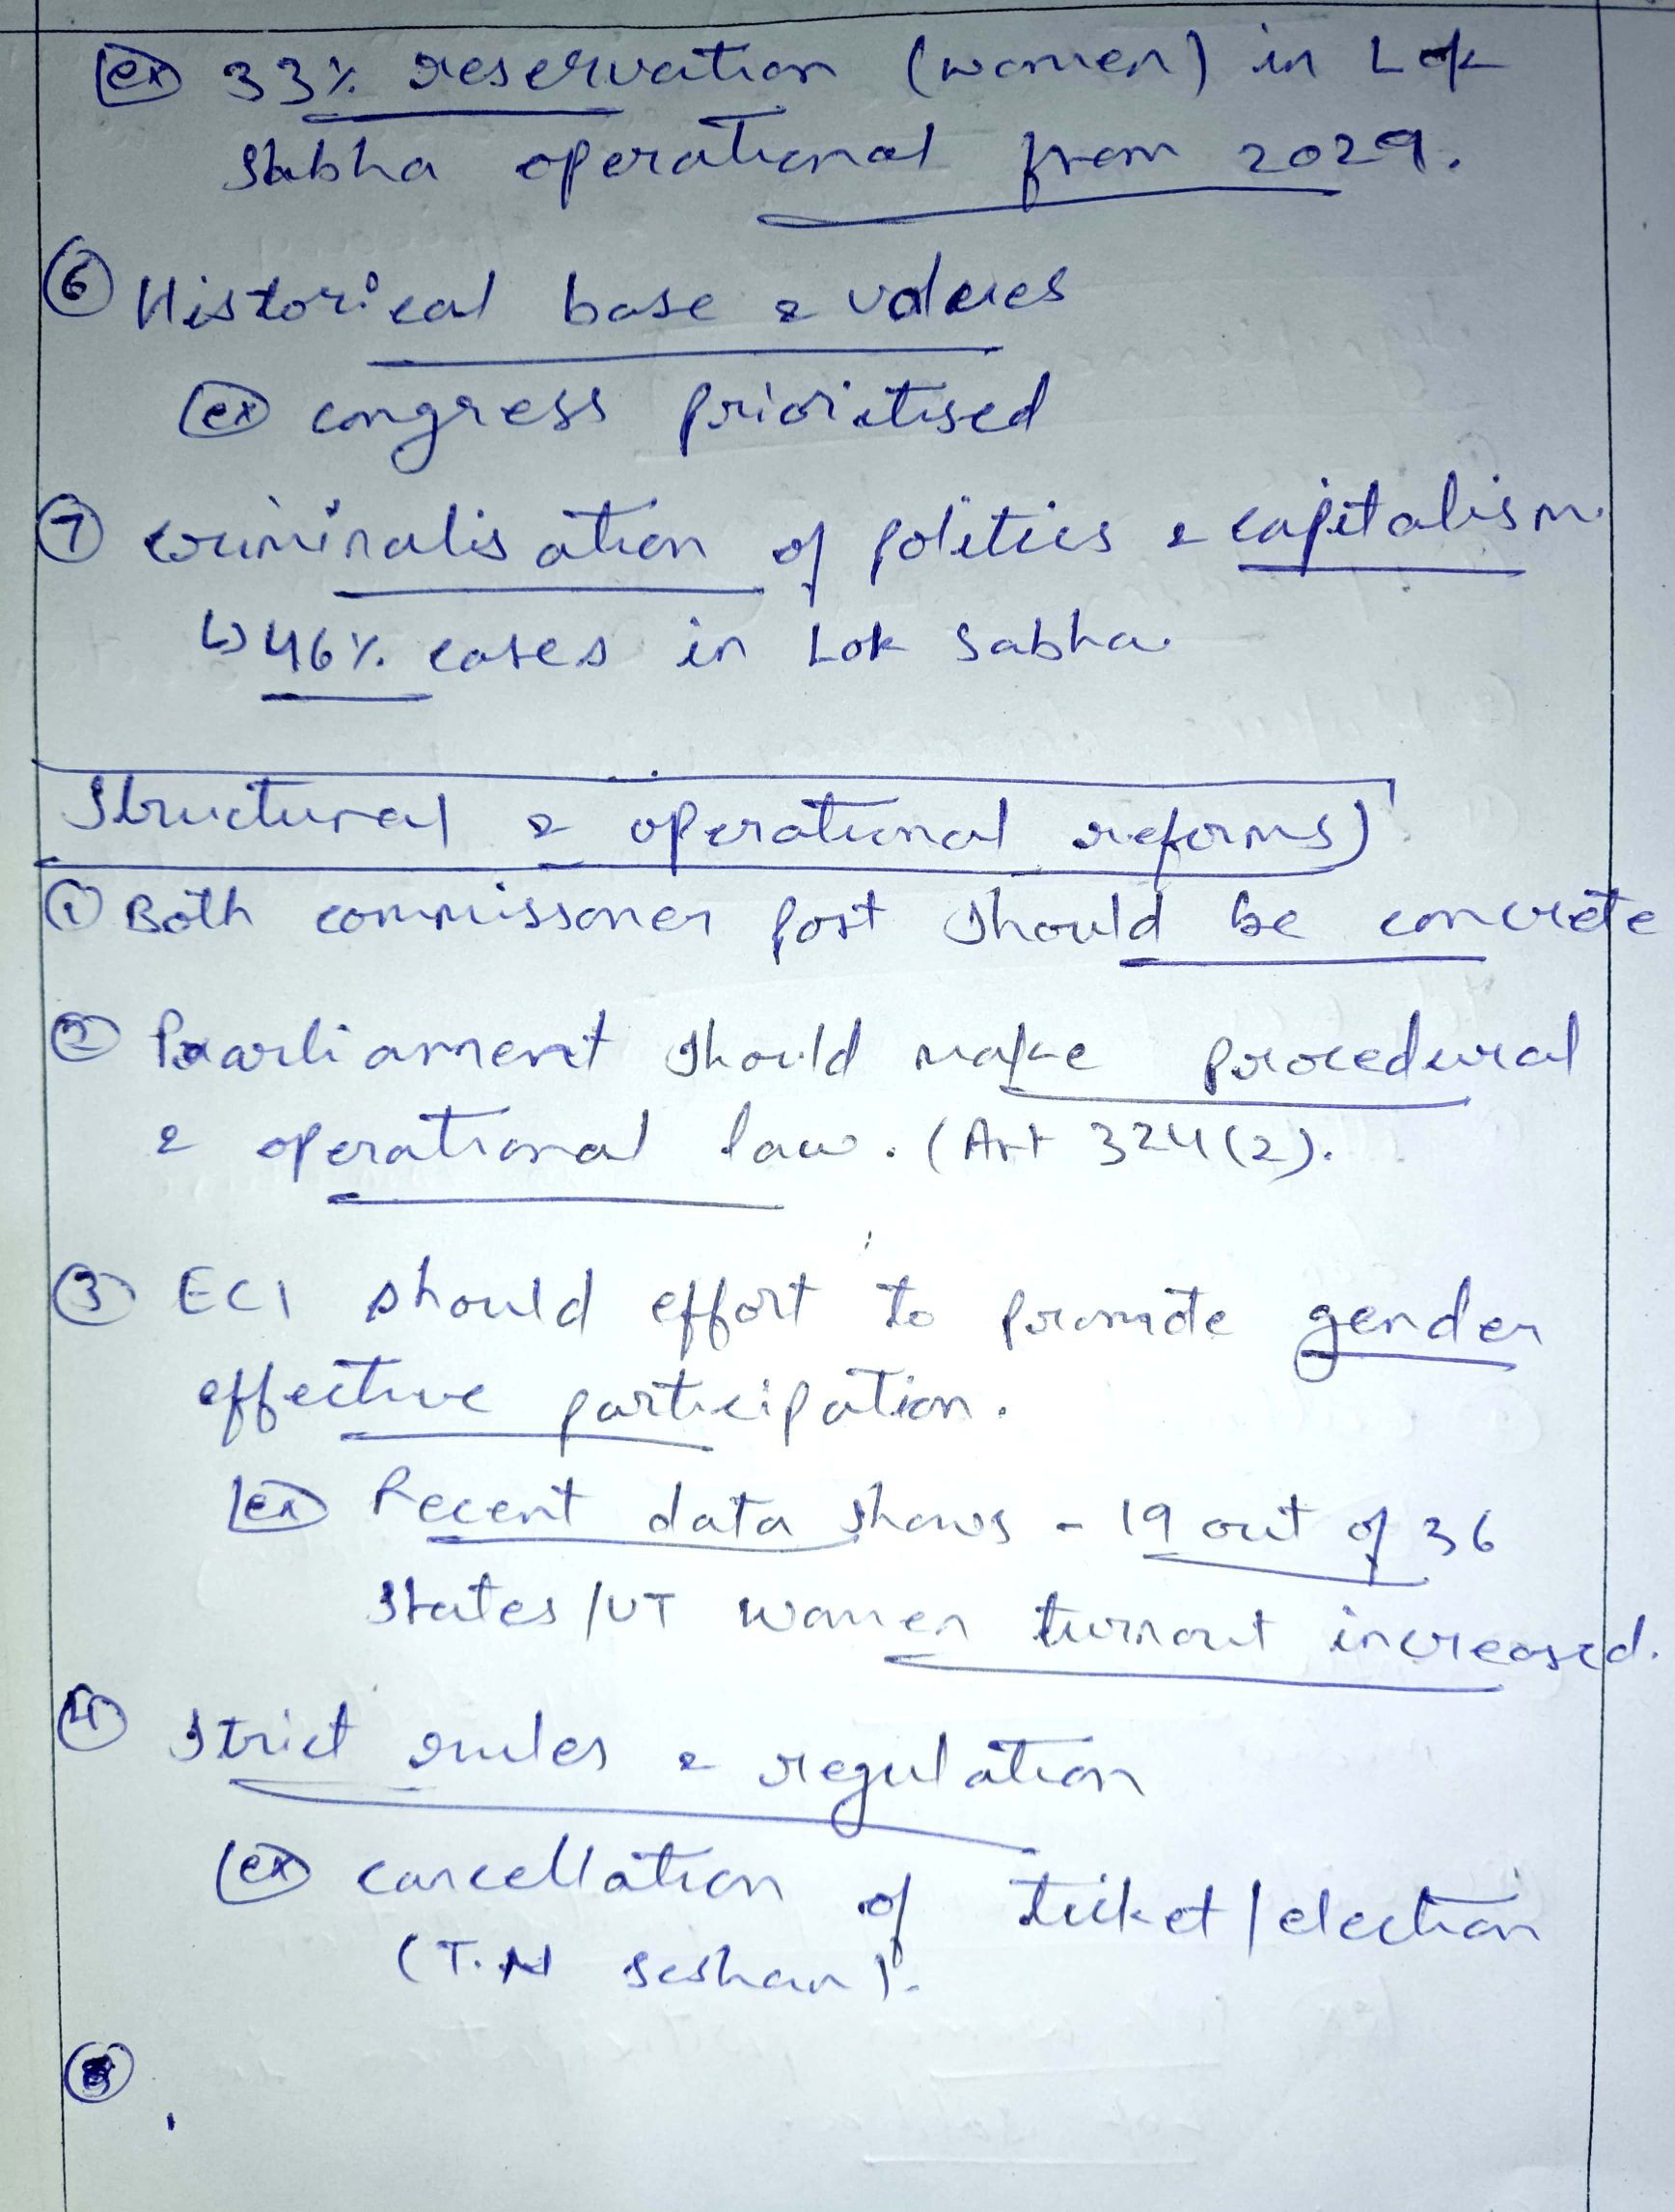 (ex) 33% reservation (women) in Lok
Sabha operational from 2029.
⑥ Historical base & values
(ex) congress prioritised
⑦ criminalisation of politics & capitalism
↳ 46% cases in Lok Sabha.
Structural & operational reforms)
① Both commissoner post should be concrete
② Paarliament should make procedural
& operational law. (Art 324(2).
③ ECI should effort to promote gender
effective participation.
(ex) Recent data shows - 19 out of 36
States/UT women turnout increased.
④ Strict rules & regulation
(ex) cancellation of ticket/election
(T.N Seshan).